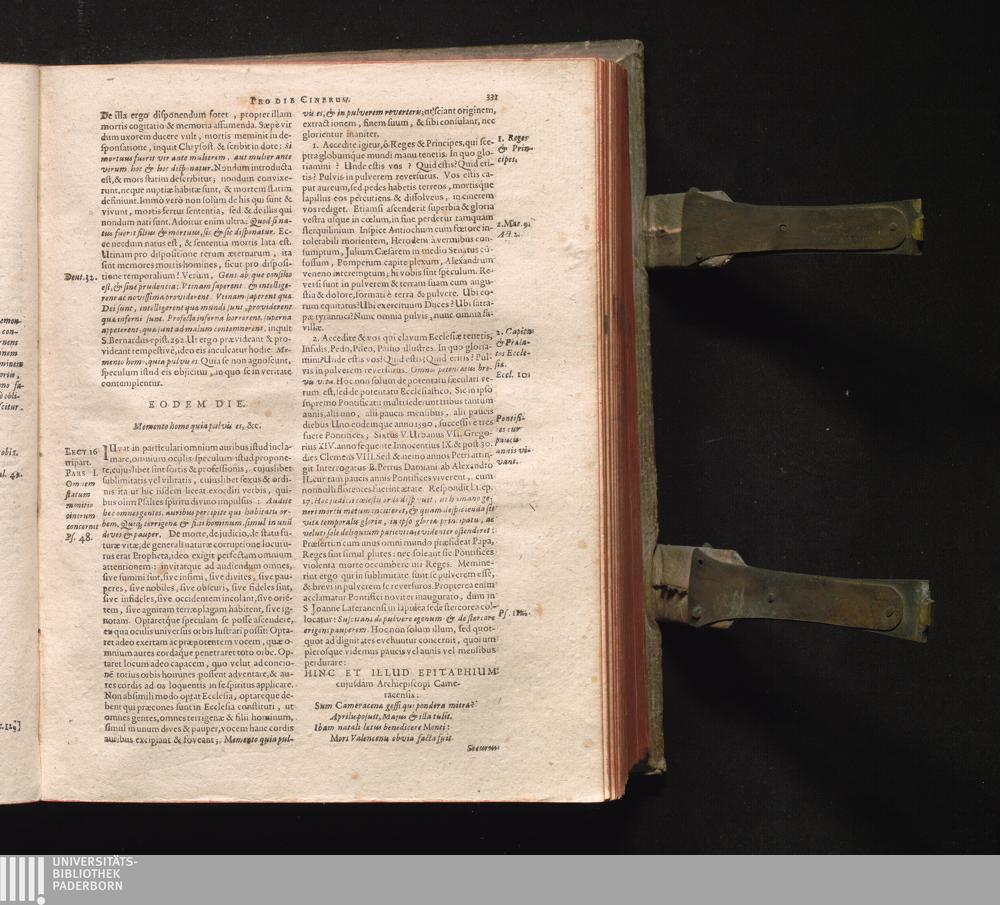 PRO DIE CINERUM.
331
De illa ergo disponendum foret, propter illam
mortis cogitatio & memoria assumenda. Sæpè vir
dum uxorem ducere vult, mortis meminit in de-
sponsatione, inquit Chrysost. & scribit in dote: Si
mortuus fuerit vir ante mulierem, aut mulier ante
virum hoc & hoc disponatur. Nondum introducta
est, & mors statim describitur; nondum convixe-
runt, neque nuptiæ habitæ sunt, & mortem statim
definiunt. Immò verò non solùm de his qui sunt &
vivunt, mortis fertur sententia, sed & de illis qui
nondum nati sunt. Adoitur enim ultra: Quod si na-
tus fuerit filius & mortuus, sic & sic disponatur. Ec-
ce necdum natus est, & sententia mortis lata est.
Utinam pro dispositione rerum æternarum, ita
sint memores mortis homines, sicut pro disposi-
Deut. 32.
tione temporalium! Verùm, Gens absque consilio
est, & sine prudentia: Vtinam saperent & intellige-
rent ac novissima providerent. Vtinam saperent quæ
Dei sunt, intelligerent quæ mundi sunt, providerent
quæ inferni sunt. Profectò inferna horrerent, superna
appeterent, quæ sunt ad malum contemnerent, inquit
S. Bernardus epist. 292. Ut ergo prævideant & pro-
videant tempestivè, ideo eis inculcatur hodie Me-
mento homo, quia pulvis es. Quia se non agnoscunt,
speculum istud eis objicitur, in quo se in veritate
contemplentur.
EODEM DIE.
Memento homo quia pulvis es, &c.
LECT. 16
tripart.
PARS I.
Omnem
statum
monitio
cinerum
concernit
Ps. 48.
IUvat in particulari omnium auribus istud incla-
mare, omnium oculis speculum istud propone-
re, cujuslibet sint sortis & professionis, cujuslibet
sublimitatis vel vilitatis, cujuslibet sexus & ordi-
nis ita ut hic iisdem liceat exordiri verbis, qui-
bus olim Psaltes spiritu divino impulsus: Audite
hæc omnes gentes, auribus percipite qui habitatis or-
bem. Quiq; terrigenæ & filii hominum, simul in unū
dives & pauper. De morte, de judicio, de statu fu-
turæ vitæ, de generali naturæ corruptione locutu-
rus erat Propheta, ideo exigit perfectam omnium
attentionem: invitatque ad audiendum omnes,
sive summi sint, sive infimi, sive divites, sive pau-
peres, sive nobiles, sive obscuri, sive fideles sint,
sive infideles, sive occidentem incolant, sive oriē-
tem, sive agnitam terræ plagam habitent, sive ig-
notam. Optaretque speculam se posse ascendere,
ex qua oculis universus orbis lustrari possit: Opta-
ret adeo exertam ac præpotentem vocem, quæ o-
mnium aures cordaque penetraret toto orbe. Op-
taret locum adeo capacem, quo velut ad concio-
nē totius orbis homines possent adventare, & au-
res cordis ad os loquentis in se spiritus applicare.
Non absimili modo optat Ecclesia, optareque de-
bent qui præcones sunt in Ecclesia constituti, ut
omnes gentes, omnes terrigenæ & filii hominum,
simul in unum dives & pauper, vocem hanc cordis
auribus excipiant & foveant; Memento quia pul-
vis es, & in pulverem reverteris; ut sciant originem,
extractionem, finem suum, & sibi consulant, nec
glorientur inaniter.
1. Reges
& Prin-
cipes.
1. Accedite igitur, ô Reges & Principes, qui sce-
ptra globumque mundi manu tenetis. In quo glo-
riamini? Unde estis vos? Quid estis? Quid eri-
tis? Pulvis in pulverem reversurus. Vos estis ca-
put aureum, sed pedes habetis terreos, mortisque
lapillus eos percutiens & dissolvens, in cinerem
vos rediget. Etiamsi ascenderit superbia & gloria
2. Mac. 9.
Act. 2.
vestra usque in cœlum, in fine perdetur tamquam
sterquilinium. Inspice Antiochum cum fœtore in-
tolerabili morientem, Herodem à vermibus con-
sumptum, Julium Cæsarem in medio Senatus cō-
fossum, Pompeium capite plexum, Alexandrum
veneno interemptum; hi vobis sint speculum. Re-
versi sunt in pulverem & terram suam cum angu-
stia & dolore, formati è terra & pulvere. Ubi eo-
rum equitatus? Ubi exercituum Duces? Ubi satra-
pæ tyrannici? Nunc omnia pulvis, nunc omnia fa-
villæ.
2. Capita
& Præla-
tos Eccle-
siæ.
Eccl. 10.
2. Accedite & vos qui clavum Ecclesiæ tenetis,
Insulis, Pedo, Pileo, Pallio illustres. In quo gloria-
mini? Unde estis vos? Quid estis? Quid eritis? Pul-
vis in pulverem reversurus. Omnis potentatus bre-
vis vita. Hoc non solum de potentatu sæculari ve-
rum est, sed de potentatu Ecclesiastico. Sic in ipso
supremo Pontificatu multi sederunt tribus tantum
annis, alii uno, alii paucis mensibus, alii paucis
Pontifi-
ces cur
paucis
annis vi-
vant.
diebus Uno eodemque anno 1590, successive tres
fuere Pontifices; Sixtus V. Urbanus VII. Grego-
rius XIV. anno sequente Innocentius IX & post 30.
dies Clemens VIII. Sed & nemo annos Petri attin-
git Interrogatus B. Petrus Damiani ab Alexandro
II. cur tam paucis annis Pontifices viverent, cum
nonnulli florentes fuerint ætate. Respondit l. 1. ep.
17. Hoc judicii cœlestis ordo disposuit, ut humano ge-
neri mortis metum incuteret, & quam despicienda sit
vitæ temporalis gloria, in ipso gloriæ principatu, ac
veluti sole deliquium patiente evidenter ostenderet:
Præsertim cum unus omni mundo præsideat Papa,
Reges sint simul plures: nec soleant sic Pontifices
violenta morte occumbere uti Reges. Memine-
rint ergo qui in sublimitate sunt se pulverem esse,
& brevi in pulverem se reversuros. Propterea enim
acclamatur Pontifici noviter inaugurato, dum in
Ps. 112.
S Joanne Lateranensi in lapidea sede stercorea col-
locatur: Suscitans de pulvere egenum & de stercore
erigens pauperem. Hoc non solum illum, sed quot-
quot ad dignitates evehuntur concernit, quorum
plerosque videmus paucis vel annis vel mensibus
perdurare:
HINC ET ILLUD EPITAPHIUM
cujusdam Archiepiscopi Came-
racensis:
Sum Cameracena gessi qui pondera mitræ
Aprilis posuit, Majus & illa tulit.
Ibam natali latus benedicere Monti:
Mors Valencenis obvia facta fuit.
Securum
UNIVERSITÄTS-
BIBLIOTHEK
PADERBORN